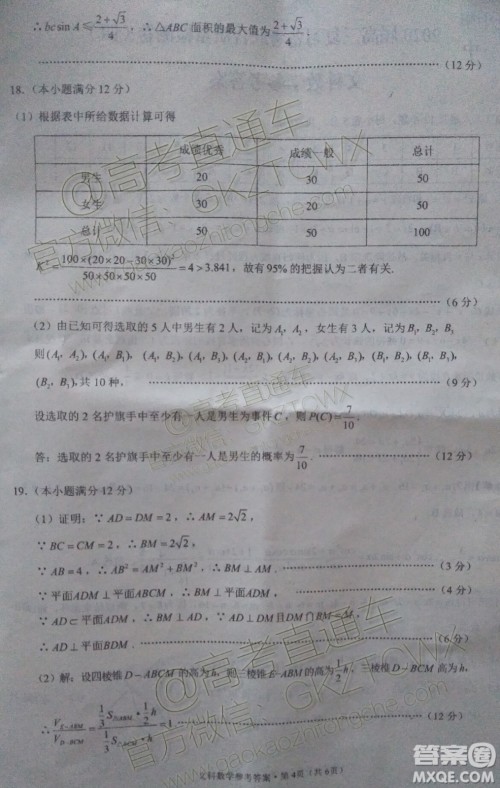 ∴ bc sin A ≤ (2+√3)/4，∴ △ABC 面积的最大值为 (2+√3)/4.
……（12 分）
18.（本小题满分 12 分）
（1）根据表中所给数据计算可得
成绩优秀 成绩一般 总计
男生 20 30 50
女生 30 20 50
总计 50 50 100
K² = 100×(20×20−30×30)²/(50×50×50×50) = 4 > 3.841，故有 95% 的把握认为二者有关.
……（6 分）
（2）由已知可得选取的 5 人中男生有 2 人，记为 A₁，A₂，女生有 3 人，记为 B₁，B₂，B₃
则 (A₁，A₂)，(A₁，B₁)，(A₁，B₂)，(A₁，B₃)，(A₂，B₁)，(A₂，B₂)，(A₂，B₃)，(B₁，B₂)，(B₁，B₃)，
(B₂，B₃)，共 10 种，……（9 分）
设选取的 2 名护旗手中至少有一人是男生为事件 C，则 P(C)=7/10.
答：选取的 2 名护旗手中至少有一人是男生的概率为 7/10.……（12 分）
19.（本小题满分 12 分）
（1）证明：∵ AD=DM=2，∴ AM=2√2，
∵ BC=CM=2，∴ BM=2√2，
∵ AB=4，∴ AB²=AM²+BM²，∴ BM⊥AM.……（3 分）
∵ 平面ADM⊥平面ABCM，∴ BM⊥平面ADM，……（4 分）
∵ AD⊂平面ADM，∴ BM⊥AD，∵ AD⊥DM 且 DM∩BM=M，
∴ AD⊥平面BDM.……（6 分）
（2）解：设四棱锥 D−ABCM 的高为 h，则三棱锥 E−ABM 的高为 1/2 h，三棱锥 D−BCM 高为 h，
∴ V_{E−ABM}/V_{D−BCM} = (1/3 S_{△ABM}·1/2 h)/(1/3 S_{△BCM}·h) = 1.……（12 分）
文科数学参考答案·第 4 页（共 6 页）
@高考直通车
官方微信：GKZTCWX
www.gaokaozhitongche.com
@高考直通车
官方微信：GKZTCWX
www.gaokaozhitongche.com
答案圈
MXQE.COM